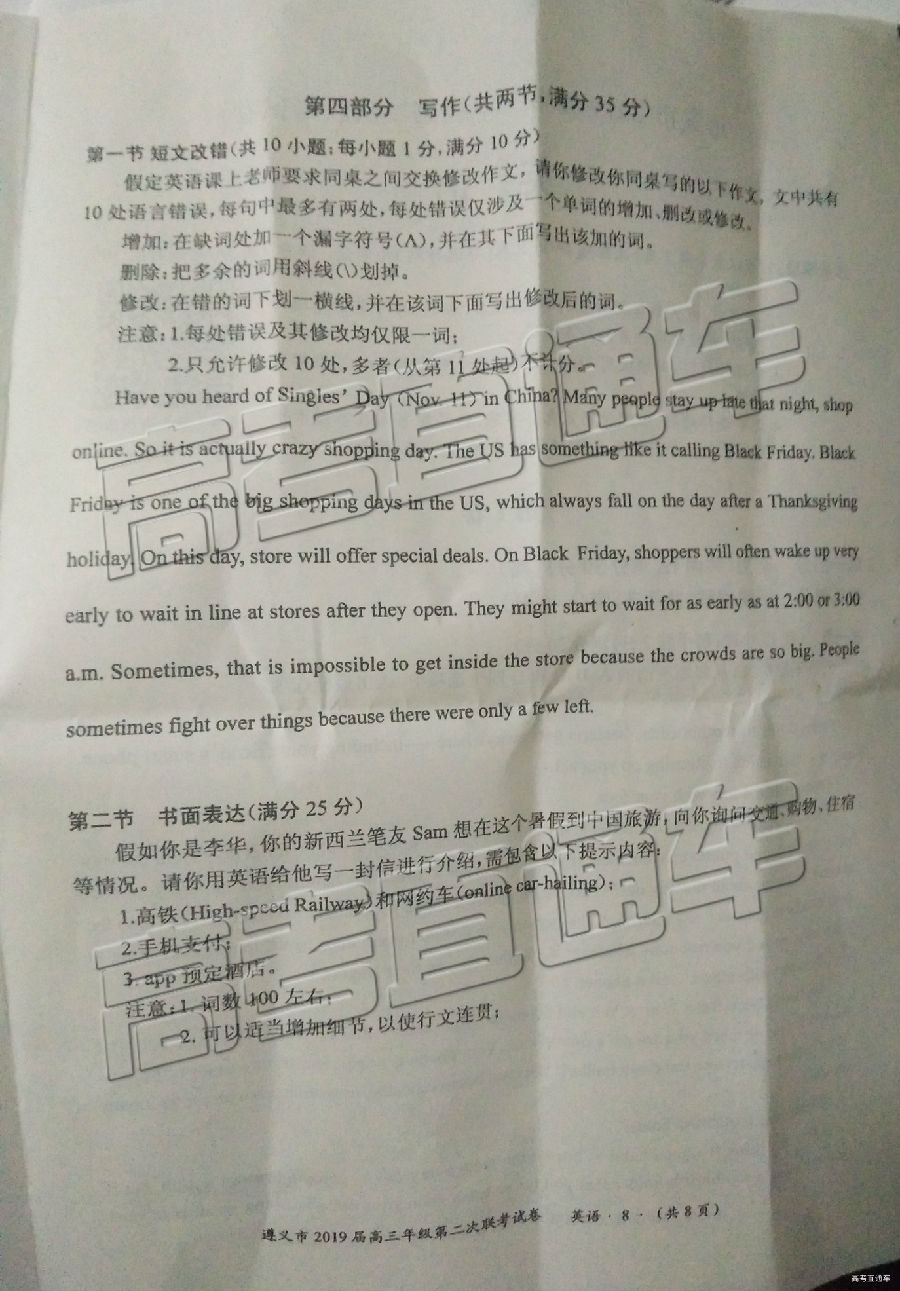 第四部分 写作(共两节,满分35分)
第一节 短文改错(共10小题;每小题1分,满分10分)
假定英语课上老师要求同桌之间交换修改作文,请你修改你同桌写的以下作文。文中共有
10处语言错误,每句中最多有两处,每处错误仅涉及一个单词的增加、删改或修改。
增加:在缺词处加一个漏字符号(∧),并在其下面写出该加的词。
删除:把多余的词用斜线(\)划掉。
修改:在错的词下划一横线,并在该词下面写出修改后的词。
注意:1.每处错误及其修改均仅限一词;
2.只允许修改10处,多者(从第11处起)不计分。
Have you heard of Singles' Day (Nov. 11) in China? Many people stay up late that night, shop
online. So it is actually crazy shopping day. The US has something like it calling Black Friday. Black
Friday is one of the big shopping days in the US, which always fall on the day after a Thanksgiving
holiday. On this day, store will offer special deals. On Black Friday, shoppers will often wake up very
early to wait in line at stores after they open. They might start to wait for as early as at 2:00 or 3:00
a.m. Sometimes, that is impossible to get inside the store because the crowds are so big. People
sometimes fight over things because there were only a few left.
第二节 书面表达(满分25分)
假如你是李华,你的新西兰笔友Sam想在这个暑假到中国旅游,向你询问交通、购物、住宿
等情况。请你用英语给他写一封信进行介绍,需包含以下提示内容:
1.高铁(High-speed Railway)和网约车(online car-hailing);
2.手机支付;
3. app预定酒店。
注意:1. 词数100左右;
2. 可以适当增加细节,以使行文连贯;
遵义市2019届高三年级第二次联考试卷 英语·8·(共8页)
高考直通车
高考直通车
高考直通车